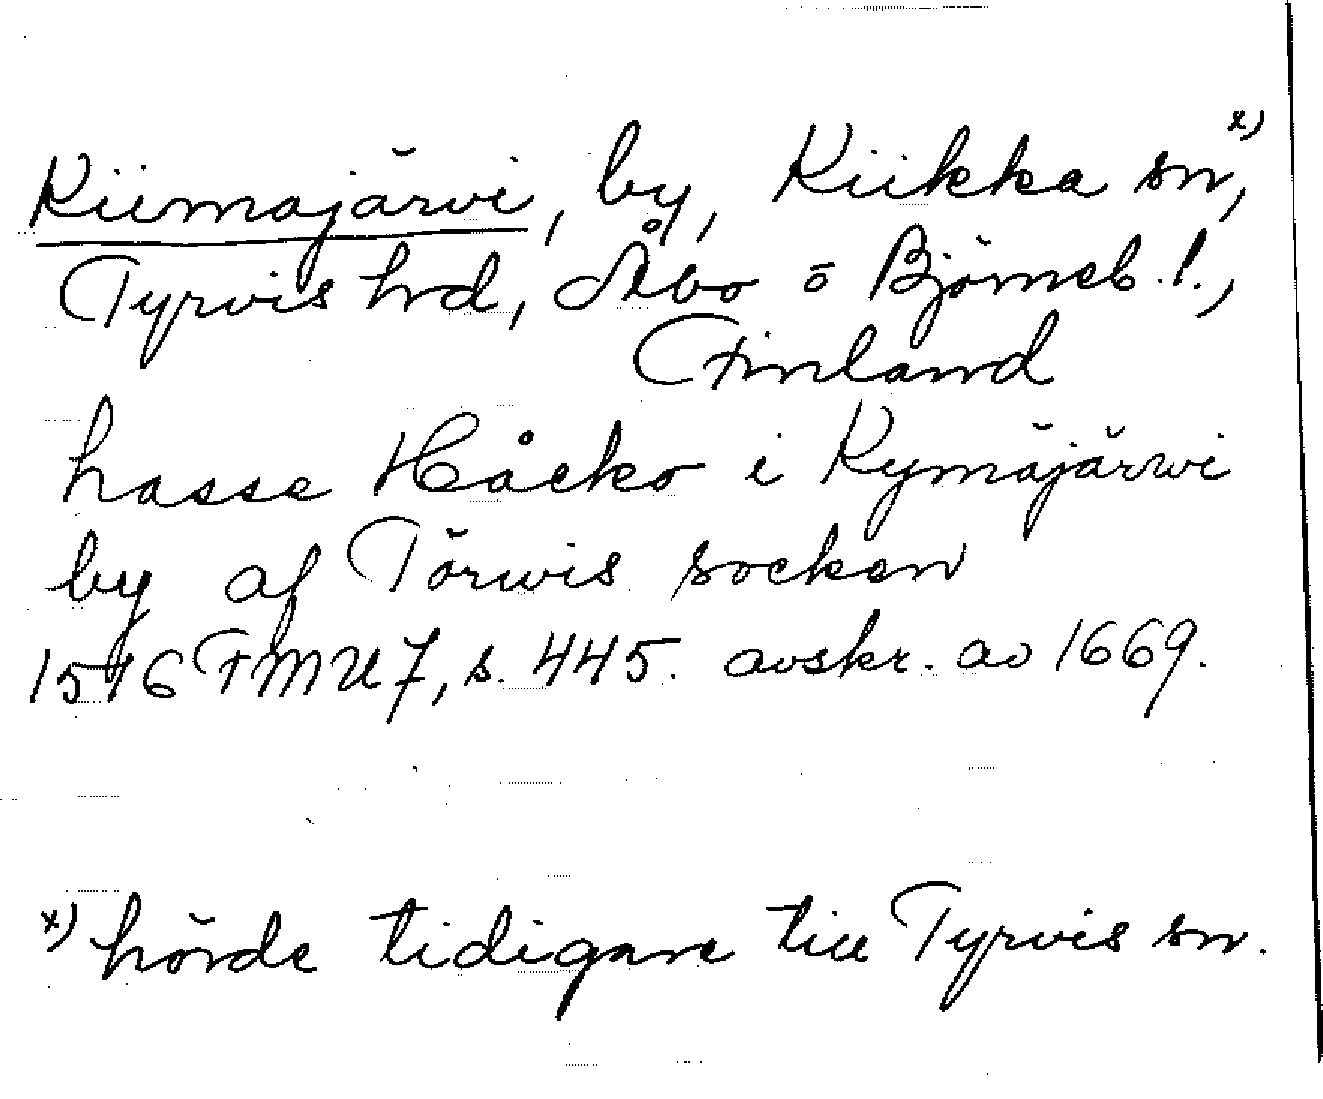 Kiimajärvi, by, Kiikka sn, x)
Tyrvis hrd, Åbo o Björneb. l.,
Finland
hasse Håcko i Kymäjärwi
by af Törwis socken
1516 FMU7, s. 445. avskr. av 1669.
x) hörde tidigare till Tyrvis sn.